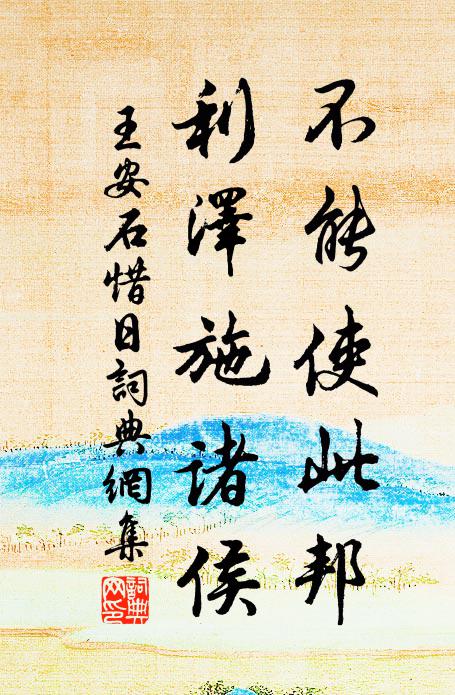 不能使此邦
利澤施諸侯
王安石惜日詞典網集
詞典网印